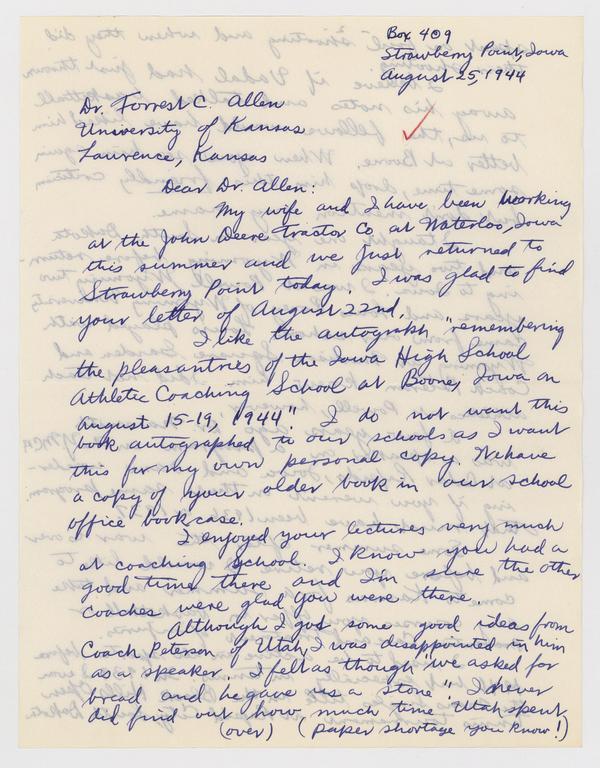 Box 409
Strawberry Point, Iowa
August 25, 1944
Dr. Forrest C. Allen
University of Kansas
Lawrence, Kansas
Dear Dr. Allen:
My wife and I have been working
at the John Deere Tractor Co. at Waterloo, Iowa
this summer and we just returned to
Strawberry Point today. I was glad to find
your letter of August 22nd.
I like the autograph "remembering
the pleasantries of the Iowa High School
Athletic Coaching School at Boone, Iowa on
August 15-19, 1944". I do not want this
book autographed to our schools as I want
this for my own personal copy. We have
a copy of your older book in our school
office bookcase.
I enjoyed your lectures very much
at coaching school. I know you had a
good time there and I'm sure the other
coaches were glad you were there.
Although I got some good ideas from
Coach Peterson of Utah, I was disappointed in him
as a speaker. I felt as though "we asked for
bread and he gave us a stone". I never
did find out how much time Utah spent
(over) (paper shortage you know!)